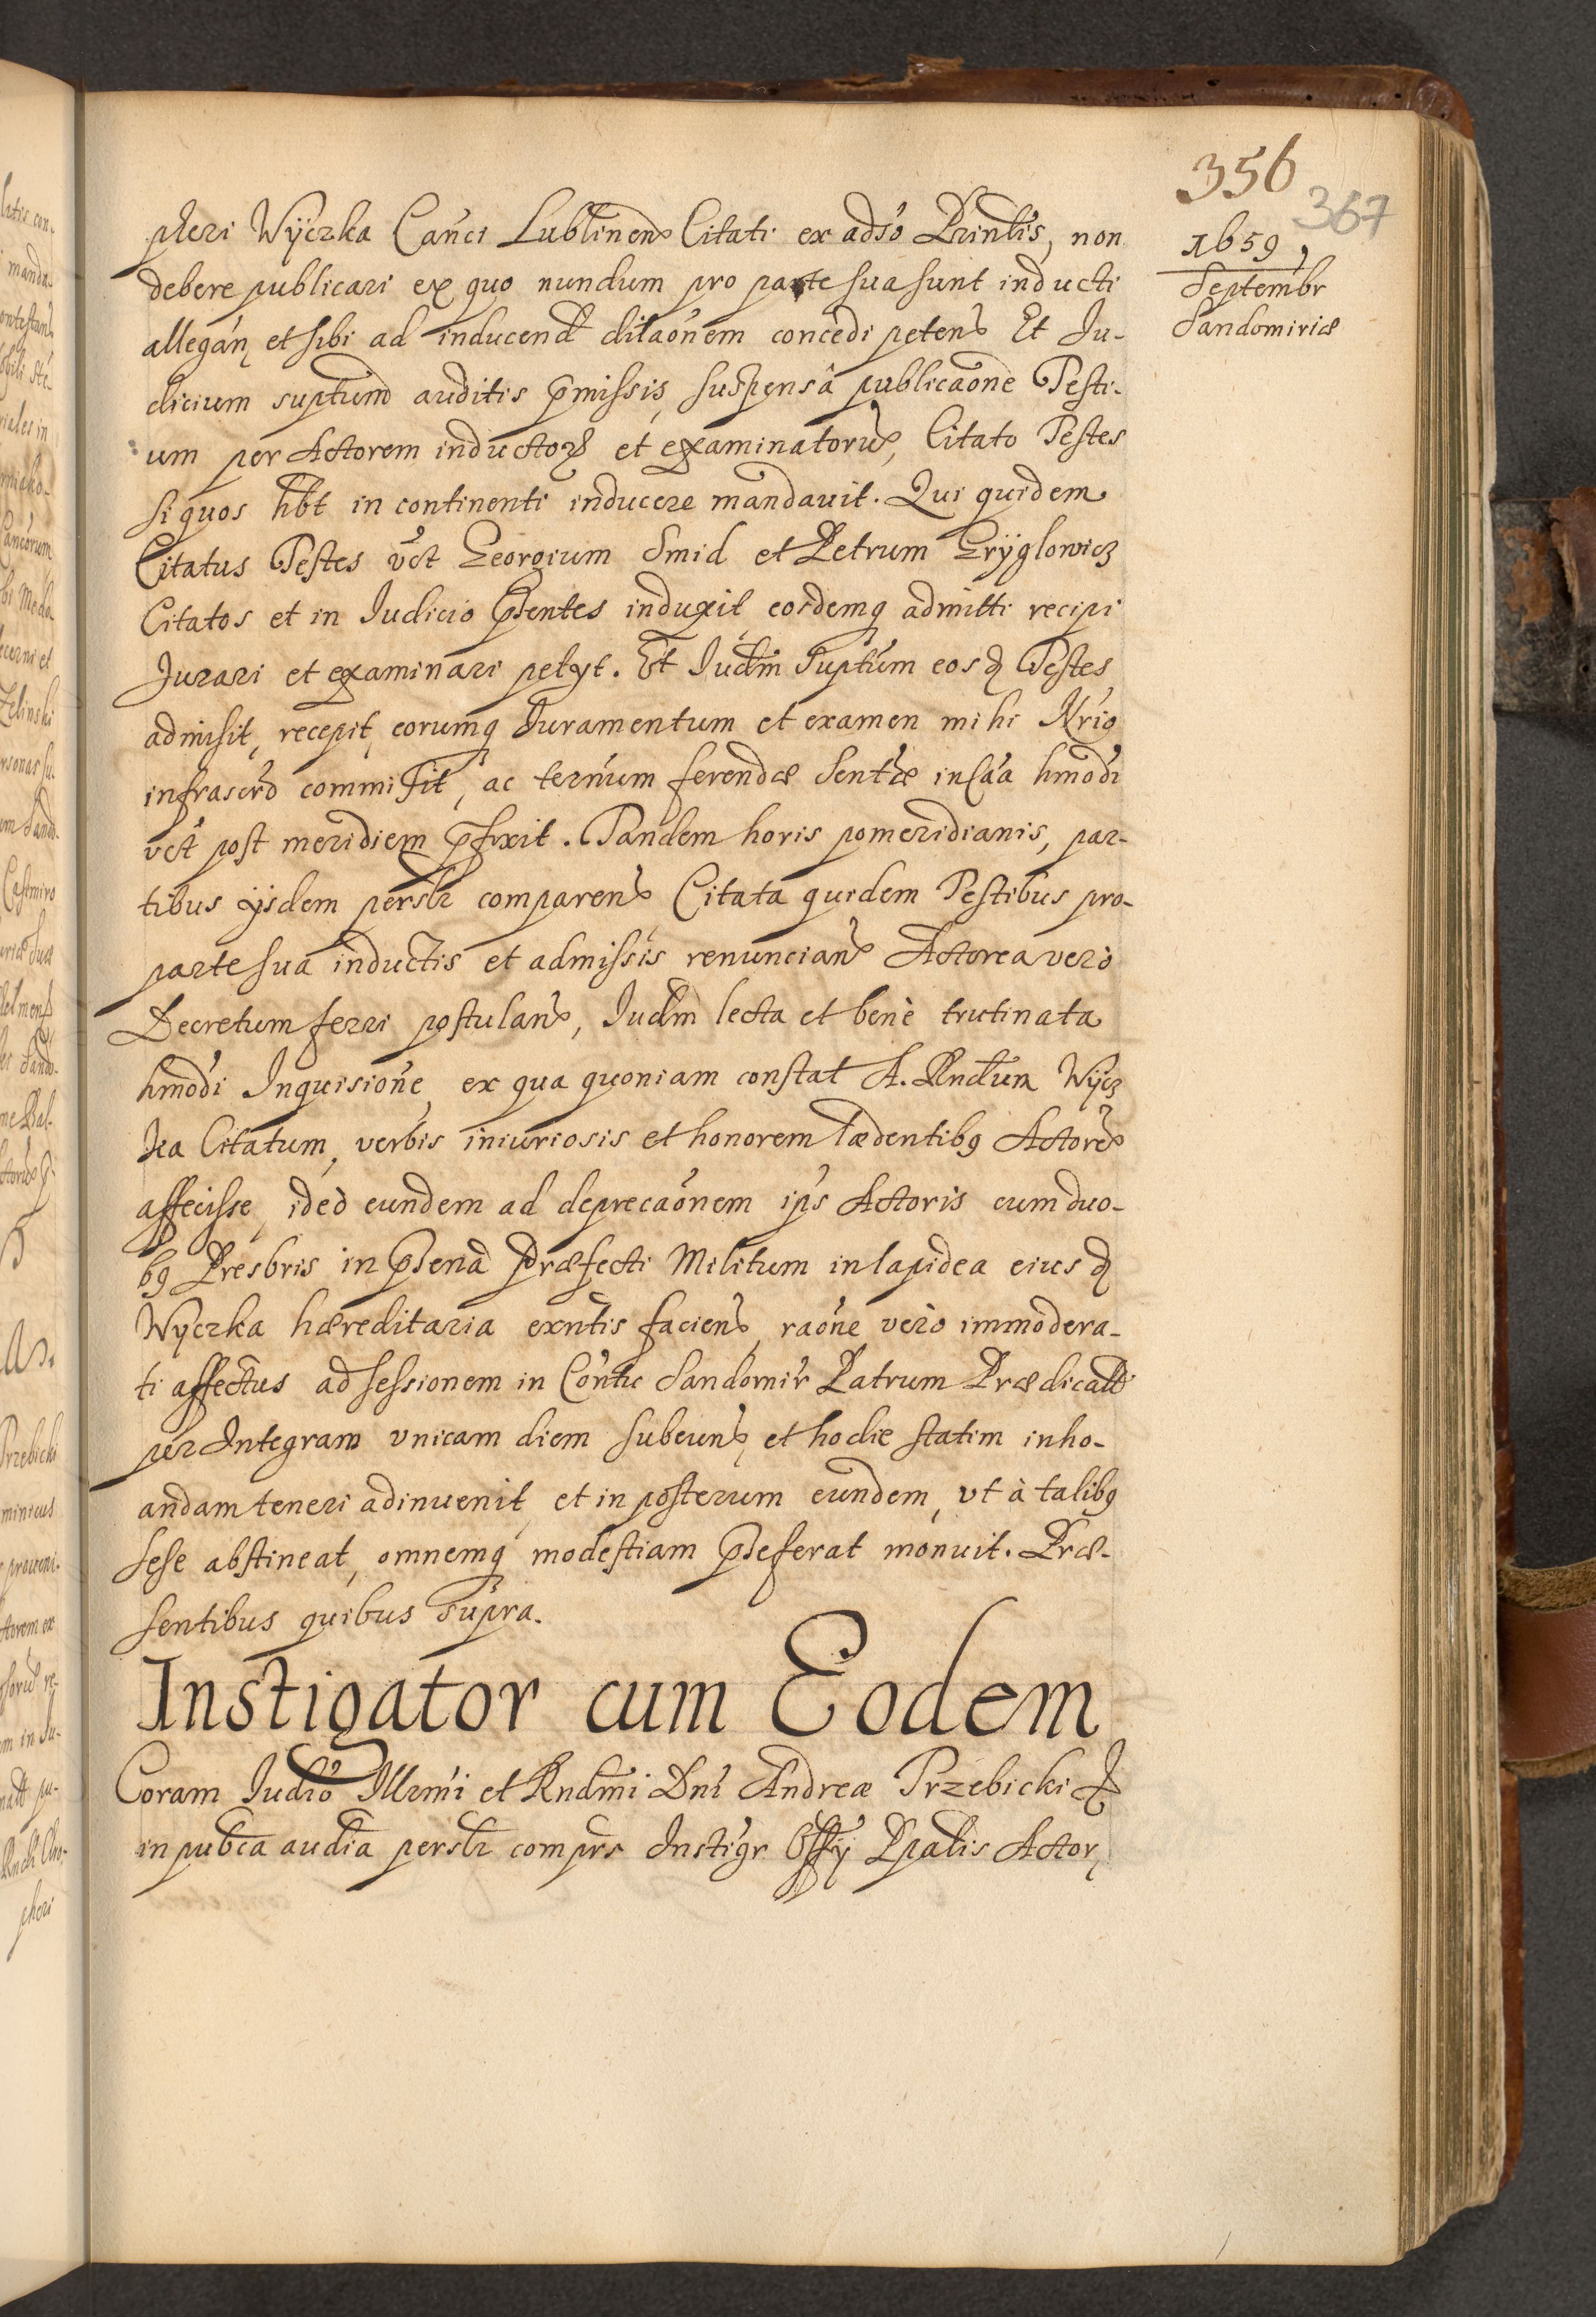 356
367
1659,
Septembr
Sandomiriæ
pheri Wÿczka Cańci Lublinens Citati ex adső Printis, non
debere publicari ex quo nundum pro parte sua sunt inducti
allegań, et sibi ad inducend dilaőnem concedi petens Et Ju-
dicium suptum auditis pmissis, suspensâ publicaőne Testi-
um per Actorem inductor et examinatorum, Citato Testes
si quos hbt in continenti inducere mandavit. Qui quidem
Citatus Testes vct Georgium Smid et Petrum Gryglowicz
Citatos et in Judicio psentes induxit eosdemq admitti recipi
Jurari et examinari petyt. Et Judm Suptum eosd Testes
admisit, recepit, eorumq Juramentum et examen mihi Nrio
infrascro commisit, ac termum ferendæ Sentæ in Caa hmodi
vct post meridiem pfixit. Tandem horis pomeridianis, par-
tibus ijsdem persłr comparens Citata quidem Testibus pro
parte sua inductis et admissis renuncians Actorea vero
Decretum ferri postulans, Judm lecta et benè trutinata
hmodi Inquisione, ex qua quoniam constat A. Rndum Wÿcz
ka Citatum, verbis iniuriosis et honorem lædentibq Actorem
affecisse, ideo eundem ad deprecaőnem ips Actoris cum duo-
bq Presbris in psena Præfecti Militum in lapidea eiusd
Wyczka hæreditaria exntis faciens, raone vero immodera-
ti affectus ad sessionem in Contu Sandomir Patrum Prædicatt
per Integram vnicam diem subeuns, et hodie statim inho-
andam teneri adinuenit, et in posterum eundem, vt à talibq
sese abstineat, omnemq modestiam pseferat monuit. Præ-
sentibus quibus supra.
Instigator cum Eodem
Coram Judio Illrmi et Rndmi Dni Andreæ Trzebicki &
in pubca audia persłr comprs Instigr Offÿ Ppalis Actor,